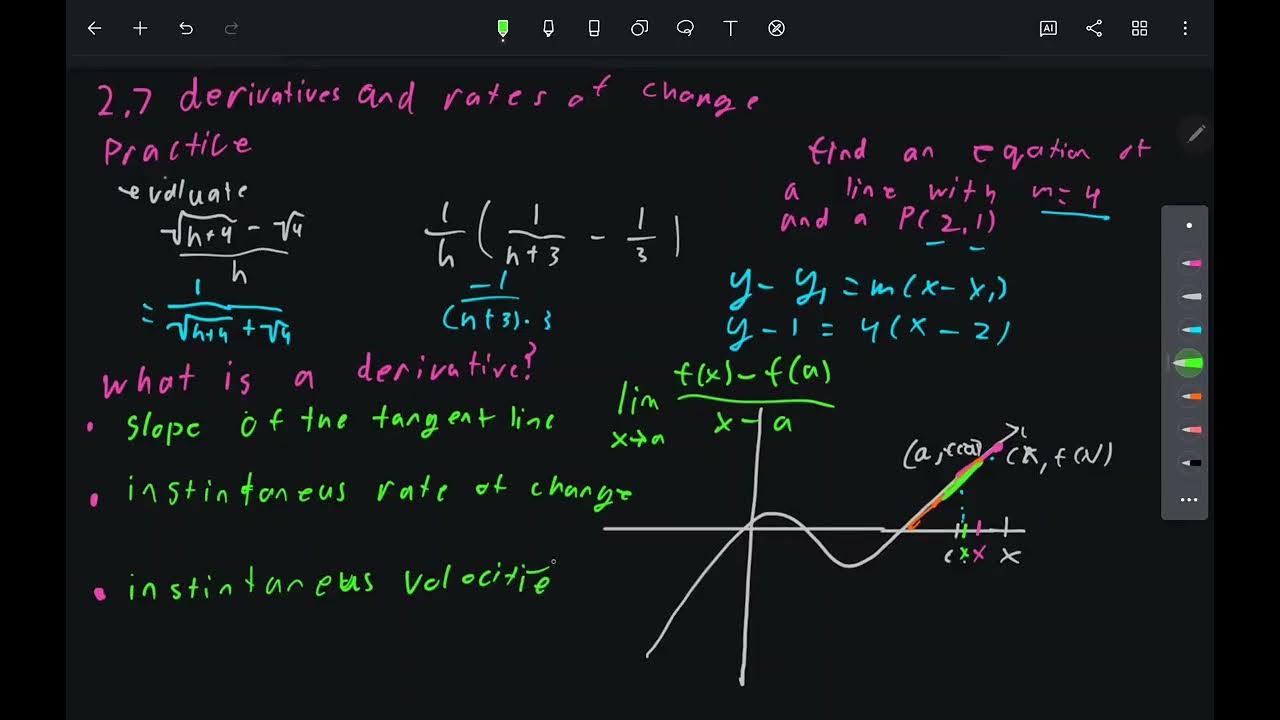 AI
2.7 derivatives and rates of change
Practice
evaluate
√h+4 - √4
h
= 1
√h+4 + √4
1/h ( 1/h+3 - 1/3 )
-1
(h+3)·3
find an equation of
a line with m=4
and a P(2,1)
y - y₁ = m(x - x₁)
y - 1 = 4(x - 2)
what is a derivative?
• slope of the tangent line
• instintaneus rate of change
• instintaneus velocitie
lim f(x) - f(a)
x→a x - a
(a, f(a)) (x, f(x))
x x x